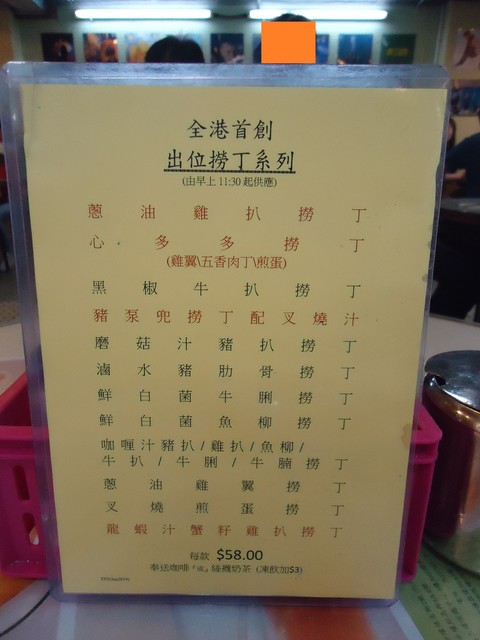 全港首創
出位撈丁系列
(由早上11:30起供應)
蔥油雞扒撈丁
心多多撈丁
(雞翼\五香肉丁\煎蛋)
黑椒牛扒撈丁
豬泵兜撈丁配叉燒汁
磨菇汁豬扒撈丁
滷水豬肋骨撈丁
鮮白菌牛脷撈丁
鮮白菌魚柳撈丁
咖喱汁豬扒/雞扒/魚柳/
牛扒/牛脷/牛腩撈丁
蔥油雞翼撈丁
叉燒煎蛋撈丁
龍蝦汁蟹籽雞扒撈丁
每款 $58.00
奉送咖啡『或』絲襪奶茶 (凍飲加$3)